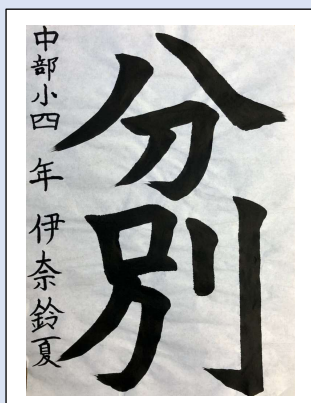 分別
中部小四年 伊奈鈴夏